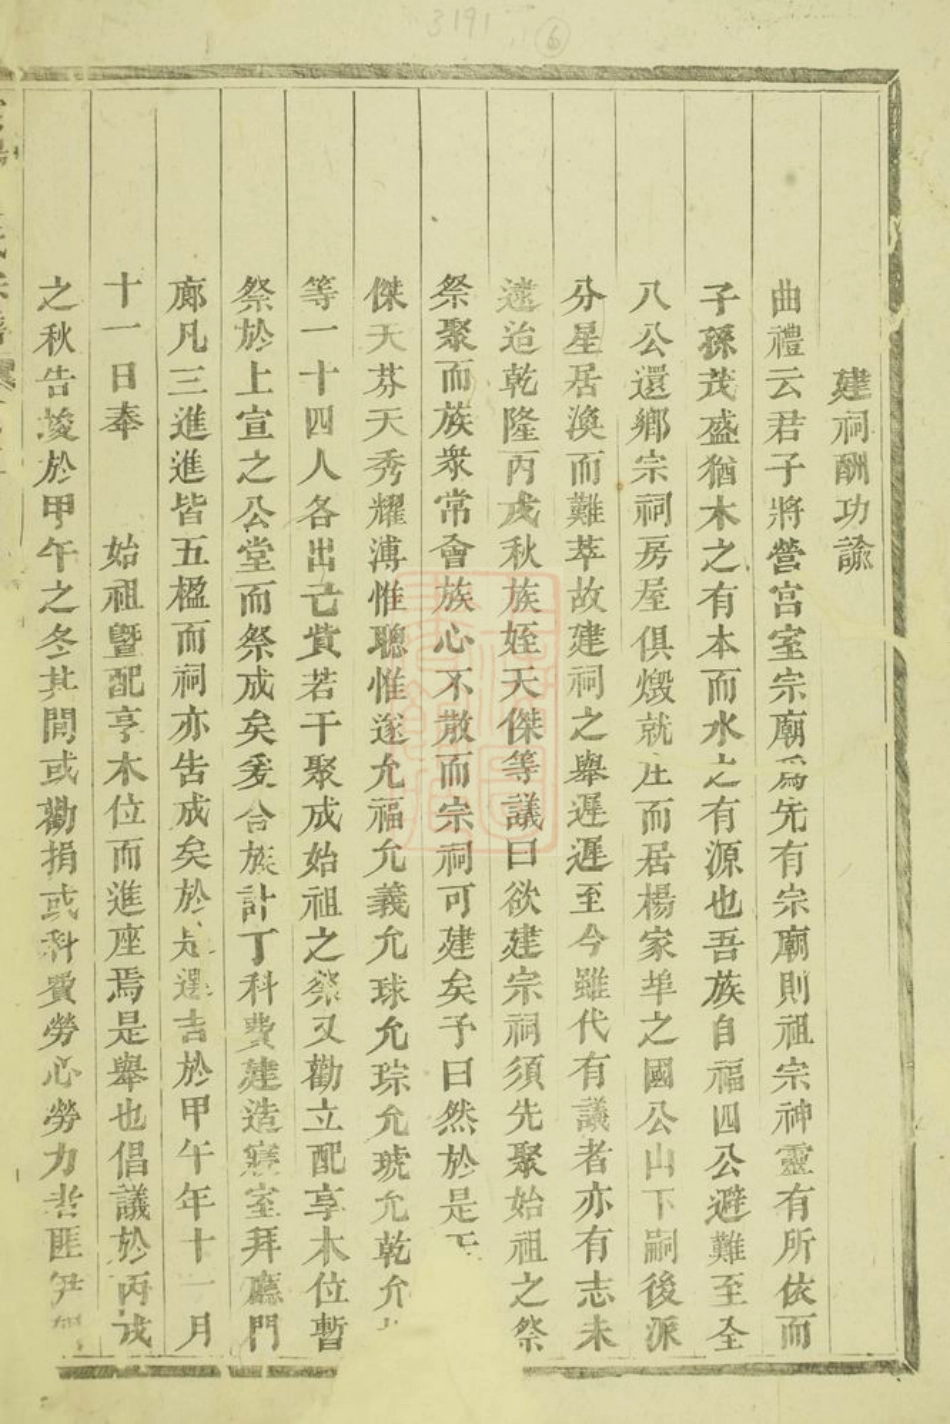 3191
6
建祠酬功諭
曲禮云君子將營宮室宗廟爲先有宗廟則祖宗神靈有所依而
子孫茂盛猶木之有本而水之有源也吾族自福四公避難至全
八公還鄉宗祠房屋俱燬就庄而居楊家埠之國公山下嗣後派
分星居渙而難萃故建祠之舉遲遲至今雖代有議者亦有志未
逮迨乾隆丙戌秋族姪天傑等議曰欲建宗祠須先聚始祖之祭
祭聚而族衆常會族心不散而宗祠可建矣予曰然於是天
傑天芬天秀耀溥惟聰惟邃允福允義允球允琮允琥允乾允
等一十四人各出己貲若干聚成始祖之祭又勸立配享木位暫
祭於上宣之公堂而祭成矣爰合族計丁科費建造寢室拜廳門
廊凡三進進皆五楹而祠亦告成矣於是選吉於甲午年十一月
十一日奉 始祖暨配享木位而進座焉是舉也倡議於丙戌
之秋告竣於甲午之冬其間或勸捐或科費勞心勞力者匪伊